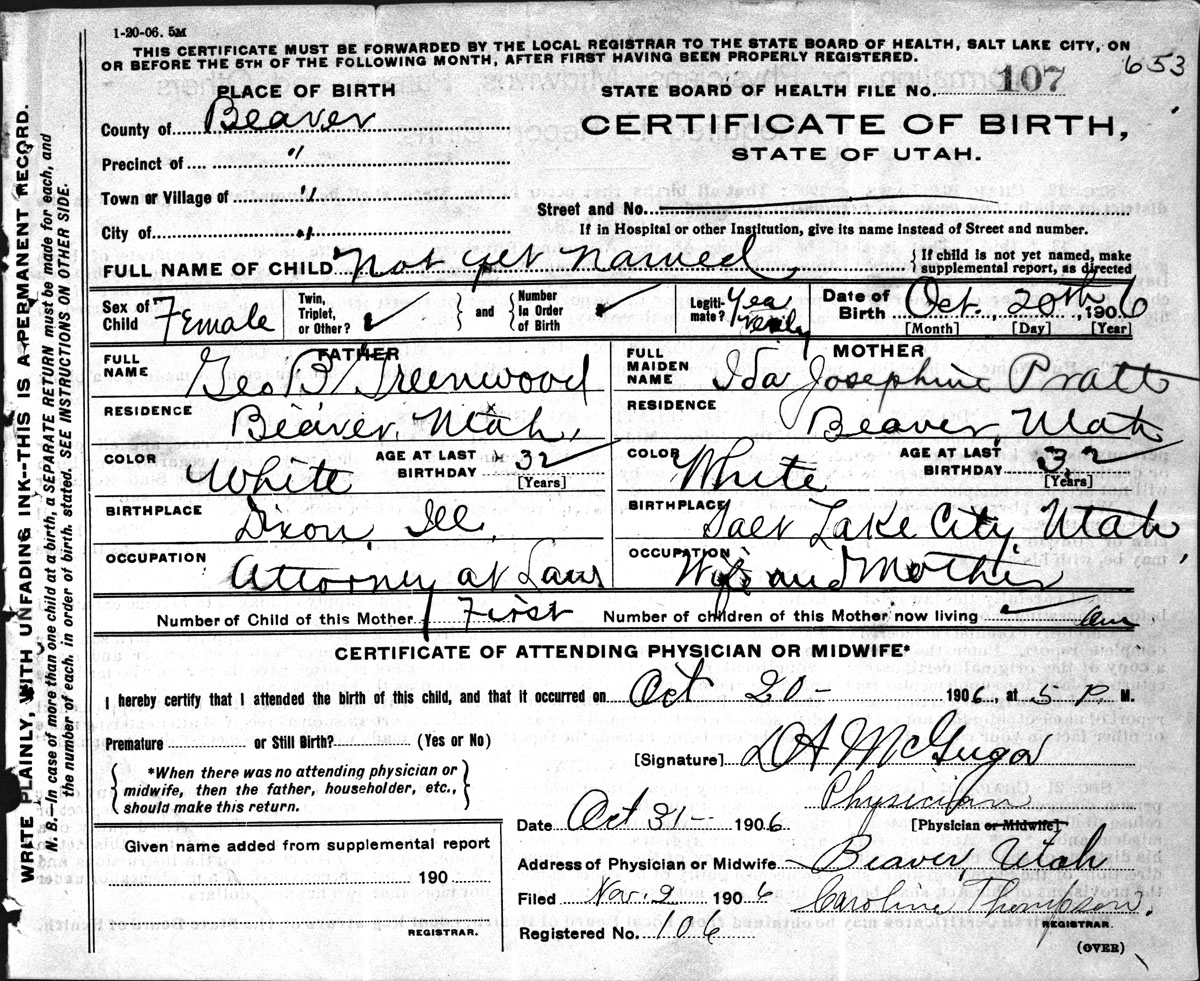 1-20-06. 5M
THIS CERTIFICATE MUST BE FORWARDED BY THE LOCAL REGISTRAR TO THE STATE BOARD OF HEALTH, SALT LAKE CITY, ON
OR BEFORE THE 5TH OF THE FOLLOWING MONTH, AFTER FIRST HAVING BEEN PROPERLY REGISTERED.
653
PLACE OF BIRTH
STATE BOARD OF HEALTH FILE No. 107
County of Beaver
CERTIFICATE OF BIRTH,
STATE OF UTAH.
Precinct of "
Town or Village of "
Street and No.
City of "
If in Hospital or other Institution, give its name instead of Street and number.
FULL NAME OF CHILD Not yet Named
If child is not yet named, make
supplemental report, as directed
Sex of Child Female
Twin, Triplet, or Other? ✓
and
Number In Order of Birth
Legitimate? Yea verily
Date of Birth Oct. 20th, 1906
[Month] [Day] [Year]
FATHER
FULL NAME Geo B Greenwood
RESIDENCE Beaver, Utah,
COLOR White
AGE AT LAST BIRTHDAY 32 [Years]
BIRTHPLACE Dixon, Ill.
OCCUPATION Attorney at Law
MOTHER
FULL MAIDEN NAME Ida Josephine Pratt
RESIDENCE Beaver, Utah
COLOR White
AGE AT LAST BIRTHDAY 32 [Years]
BIRTHPLACE Salt Lake City, Utah,
OCCUPATION Wife and Mother
Number of Child of this Mother First
Number of children of this Mother now living
CERTIFICATE OF ATTENDING PHYSICIAN OR MIDWIFE*
I hereby certify that I attended the birth of this child, and that it occurred on Oct 20- 1906, at 5 P. M.
Premature or Still Birth? (Yes or No)
[Signature] D A McGregor
*When there was no attending physician or
midwife, then the father, householder, etc.,
should make this return.
Physician
[Physician or Midwife]
Date Oct 31- 1906
Given name added from supplemental report
190
REGISTRAR.
Address of Physician or Midwife Beaver, Utah
Filed Nov. 2 1906 Caroline Thompson.
REGISTRAR.
Registered No. 106
(OVER)
WRITE PLAINLY, WITH UNFADING INK--THIS IS A PERMANENT RECORD.
N. B.—In case of more than one child at a birth, a SEPARATE RETURN must be made for each, and
the number of each, in order of birth, stated. SEE INSTRUCTIONS ON OTHER SIDE.